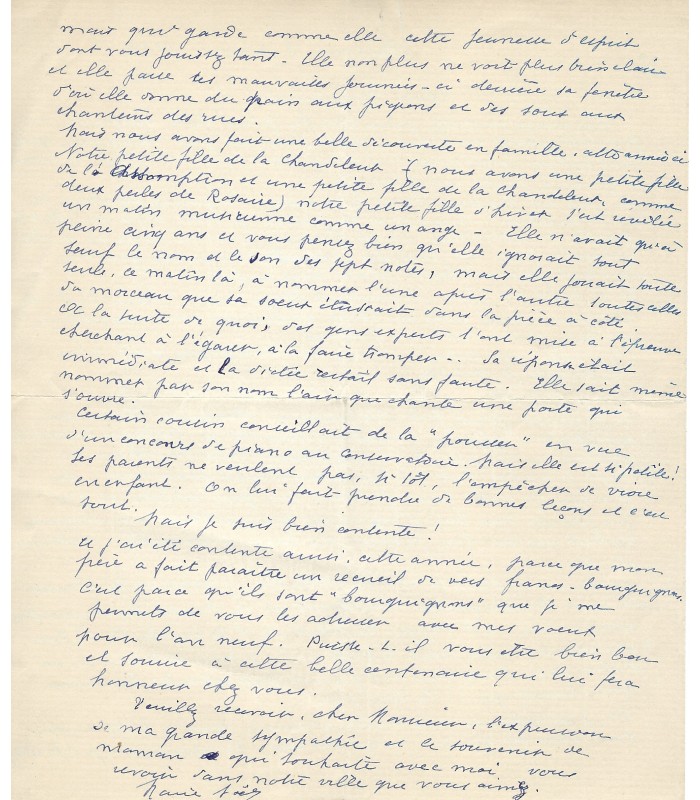 mais qui garde comme elle cette jeunesse d'esprit
dont vous jouissez tant - Elle non plus ne voit plus bien clair
et elle passe ses mauvaises journées-ci derrière sa fenêtre
d'où elle donne du grain aux pigeons et des sous aux
chanteurs des rues.
Mais nous avons fait une belle découverte en famille, cette année-ci
Notre petite fille de la Chandeleur (nous avons une petite fille
de l'Assomption et une petite fille de la Chandeleur, comme
deux perles de Rosaire) notre petite fille d'hiver s'est révélée
un matin musicienne comme un ange - Elle n'avait qu'à
peine cinq ans et vous pensez bien qu'elle ignorait tout
sauf le nom et le son des sept notes, mais elle jouait toute
seule, ce matin là, à nommer l'une après l'autre toutes celles
du morceau que sa soeur étudiait dans la pièce à côté.
A la suite de quoi, des gens experts l'ont mise à l'épreuve
cherchant à l'égarer, à la faire tromper.. Sa réponse était
immédiate et la dictée restait sans faute. Elle sait même
nommer par son nom l'air que chante une porte qui
s'ouvre.
Certain cousin conseillait de la "pousser" en vue
d'un concours de piano au conservatoire. Mais elle est si petite!
Ses parents ne veulent pas, si tôt, l'empêcher de vivre
en enfant. On lui fait prendre de bonnes leçons et c'est
tout.
Mais je suis bien contente!
Et j'ai été contente aussi, cette année, parce que mon
frère a fait paraître un recueil de vers francs-bourguignons.
C'est parce qu'ils sont "bourguignons" que je me
permets de vous les adresser avec mes voeux
pour l'an neuf. Puisse-t-il vous être bien bon
et sourire à cette belle centenaire qui lui fera
honneur chez vous.
Veuillez recevoir, cher Monsieur, l'expression
de ma grande sympathie et le souvenir de
maman qui souhaite avec moi vous
revoir dans notre ville que vous aimez.
Marie Noël